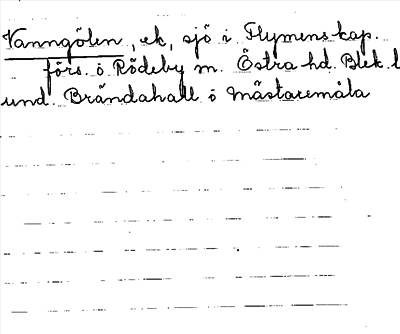 Vanngölen, ek, sjö i Flymens kap.
förs. ö Rödeby m. Östra hd. Blek. l
und. Brändahall ö Mästaremåla